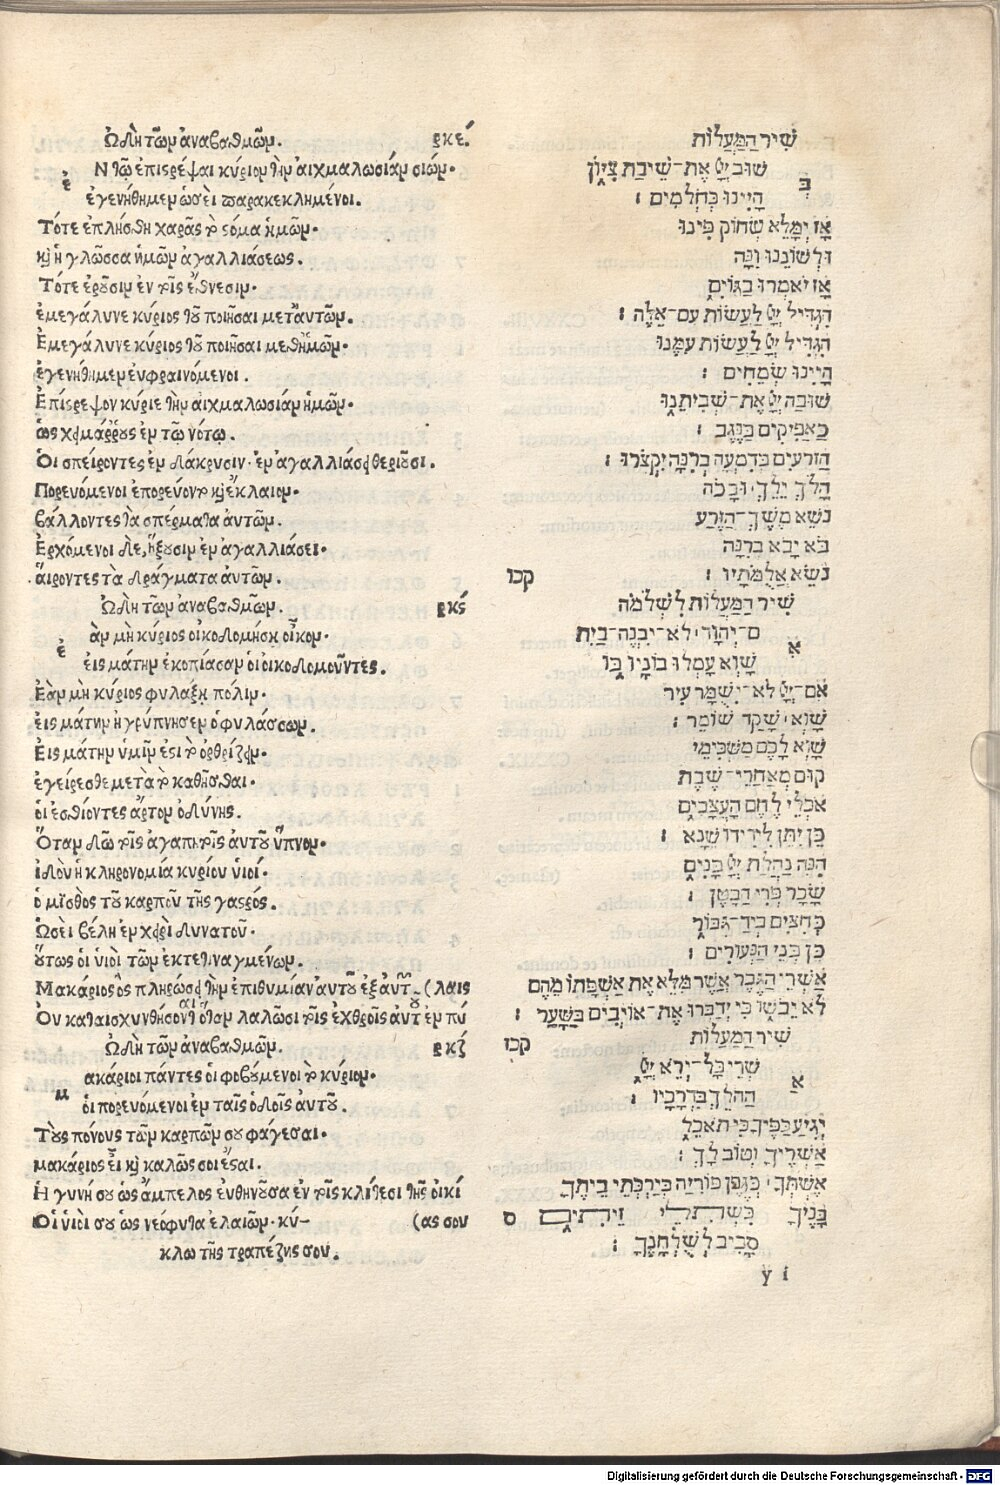 Ὠδὴ τῶν ἀναβαθμῶν. ρκέ.
Ἐν τῷ ἐπιστρέψαι κύριον τὴν αἰχμαλωσίαν σιών·
ἐγενήθημεν ὡσεὶ παρακεκλημένοι.
Τότε ἐπλήσθη χαρᾶς τὸ στόμα ἡμῶν·
καὶ ἡ γλῶσσα ἡμῶν ἀγαλλιάσεως.
Τότε ἐροῦσιν ἐν τοῖς ἔθνεσιν·
ἐμεγάλυνε κύριος τοῦ ποιῆσαι μετ' αὐτῶν.
Ἐμεγάλυνε κύριος τοῦ ποιῆσαι μεθ' ἡμῶν·
ἐγενήθημεν ἐυφραινόμενοι.
Ἐπίστρεψον κύριε τὴν αἰχμαλωσίαν ἡμῶν·
ὡς χειμάῤῥους ἐν τῷ νότῳ.
Ὁι σπείροντες ἐν δάκρυσιν· ἐν ἀγαλλιάσει θεριοῦσι.
Πορευόμενοι ἐπορεύοντο καὶ ἔκλαιον·
βάλλοντες τὰ σπέρματα ἀυτῶν.
Ἐρχόμενοι δὲ, ἥξουσιν ἐν ἀγαλλιάσει·
ἄιροντες τὰ δράγματα ἀυτῶν.
Ὠδὴ τῶν ἀναβαθμῶν. ρκϛ́
Ἐὰν μὴ κύριος οἰκοδομήσῃ οἶκον·
ἐις μάτην ἐκοπίασαν ὁι οἰκοδομοῦντες.
Ἐὰν μὴ κύριος φυλάξῃ πόλιν·
ἐις μάτην ἠγρύπνησεν ὁ φυλάσσων.
Ἐις μάτην ὑμῖν ἐστι τὸ ὀρθρίζειν·
ἐγείρεσθε μετὰ τὸ καθῆσθαι·
ὁι ἐσθίοντες ἄρτον ὀδύνης.
Ὅταν δῶ τοῖς ἀγαπητοῖς ἀυτοῦ ὕπνον·
ἰδοὺ ἡ κληρονομία κυρίου υἱοί·
ὁ μισθὸς τοῦ καρποῦ τῆς γαστρός.
Ὡσεὶ βέλη ἐν χειρὶ δυνατοῦ·
ὅυτως ὁι υἱοὶ τῶν ἐκτετιναγμένων.
Μακάριος ὃς πληρώσει τὴν ἐπιθυμίαν αὐτοῦ ἐξ ἀυτῶν (λαις
Ὀυ καταισχυνθήσονται ὅταν λαλῶσι τοῖς ἐχθροῖς ἀυτοῦ ἐν πύ
Ὠδὴ τῶν ἀναβαθμῶν. ρκζ́
Μακάριοι πάντες ὁι φοβούμενοι τὸ κύριον·
ὁι πορευόμενοι ἐν ταῖς ὁδοῖς ἀυτοῦ.
Τοὺς πόνους τῶν καρπῶν σου φάγεσαι·
μακάριος εἶ καὶ καλῶς σοι ἔσται.
Ἡ γυνή σου ὡς ἄμπελος ἐυθηνοῦσα ἐν τοῖς κλίτεσι τῆς ὀικί
Ὁι υἱοί σου ὡς νεόφυτα ἐλαιῶν· κύ- (ας σου
κλω τῆς τραπέζης σου.
שִׁיר הַמַּעֲלוֹת
בְּשׁוּב יְיָ אֶת־שִׁיבַת צִיּוֹן
הָיִינוּ כְּחֹלְמִים :
אָז יִמָּלֵא שְׂחוֹק פִּינוּ
וּלְשׁוֹנֵנוּ רִנָּה
אָז יֹאמְרוּ בַגּוֹיִם
הִגְדִּיל יְיָ לַעֲשׂוֹת עִם־אֵלֶּה :
הִגְדִּיל יְיָ לַעֲשׂוֹת עִמָּנוּ
הָיִינוּ שְׂמֵחִים :
שׁוּבָה יְיָ אֶת־שְׁבִיתֵנוּ
כַּאֲפִיקִים בַּנֶּגֶב :
הַזֹּרְעִים בְּדִמְעָה בְּרִנָּה יִקְצֹרוּ :
הָלֹךְ יֵלֵךְ וּבָכֹה
נֹשֵׂא מֶשֶׁךְ־הַזָּרַע
בֹּא יָבֹא בְרִנָּה
נֹשֵׂא אֲלֻמֹּתָיו : קכו
שִׁיר הַמַּעֲלוֹת לִשְׁלֹמֹה
אִם־יְהוָֹה לֹא־יִבְנֶה־בַיִת
שָׁוְא עָמְלוּ בוֹנָיו בּוֹ
אִם־יְיָ לֹא־יִשְׁמָר עִיר
שָׁוְא שָׁקַד שׁוֹמֵר :
שָׁוְא לָכֶם מַשְׁכִּימֵי
קוּם מְאַחֲרֵי־שֶׁבֶת
אֹכְלֵי לֶחֶם הָעֲצָבִים
כֵּן יִתֵּן לִידִידוֹ שֵׁנָא :
הִנֵּה נַחֲלַת יְיָ בָּנִים
שָׂכָר פְּרִי הַבָּטֶן :
כְּחִצִּים בְּיַד־גִּבּוֹר
כֵּן בְּנֵי הַנְּעוּרִים :
אַשְׁרֵי הַגֶּבֶר אֲשֶׁר מִלֵּא אֶת אַשְׁפָּתוֹ מֵהֶם
לֹא יֵבֹשׁוּ כִּי יְדַבְּרוּ אֶת־אוֹיְבִים בַּשָּׁעַר :
שִׁיר הַמַּעֲלוֹת קכז
אַשְׁרֵי כָּל־יְרֵא יְיָ
הַהֹלֵךְ בִּדְרָכָיו :
יְגִיעַ כַּפֶּיךָ כִּי תֹאכֵל
אַשְׁרֶיךָ וְטוֹב לָךְ :
אֶשְׁתְּךָ כְּגֶפֶן פֹּרִיָּה בְּיַרְכְּתֵי בֵיתֶךָ
בָּנֶיךָ כִּשְׁתִלֵי זֵיתִים ס
סָבִיב לְשֻׁלְחָנֶךָ :
y i
Digitalisierung gefördert durch die Deutsche Forschungsgemeinschaft - DFG